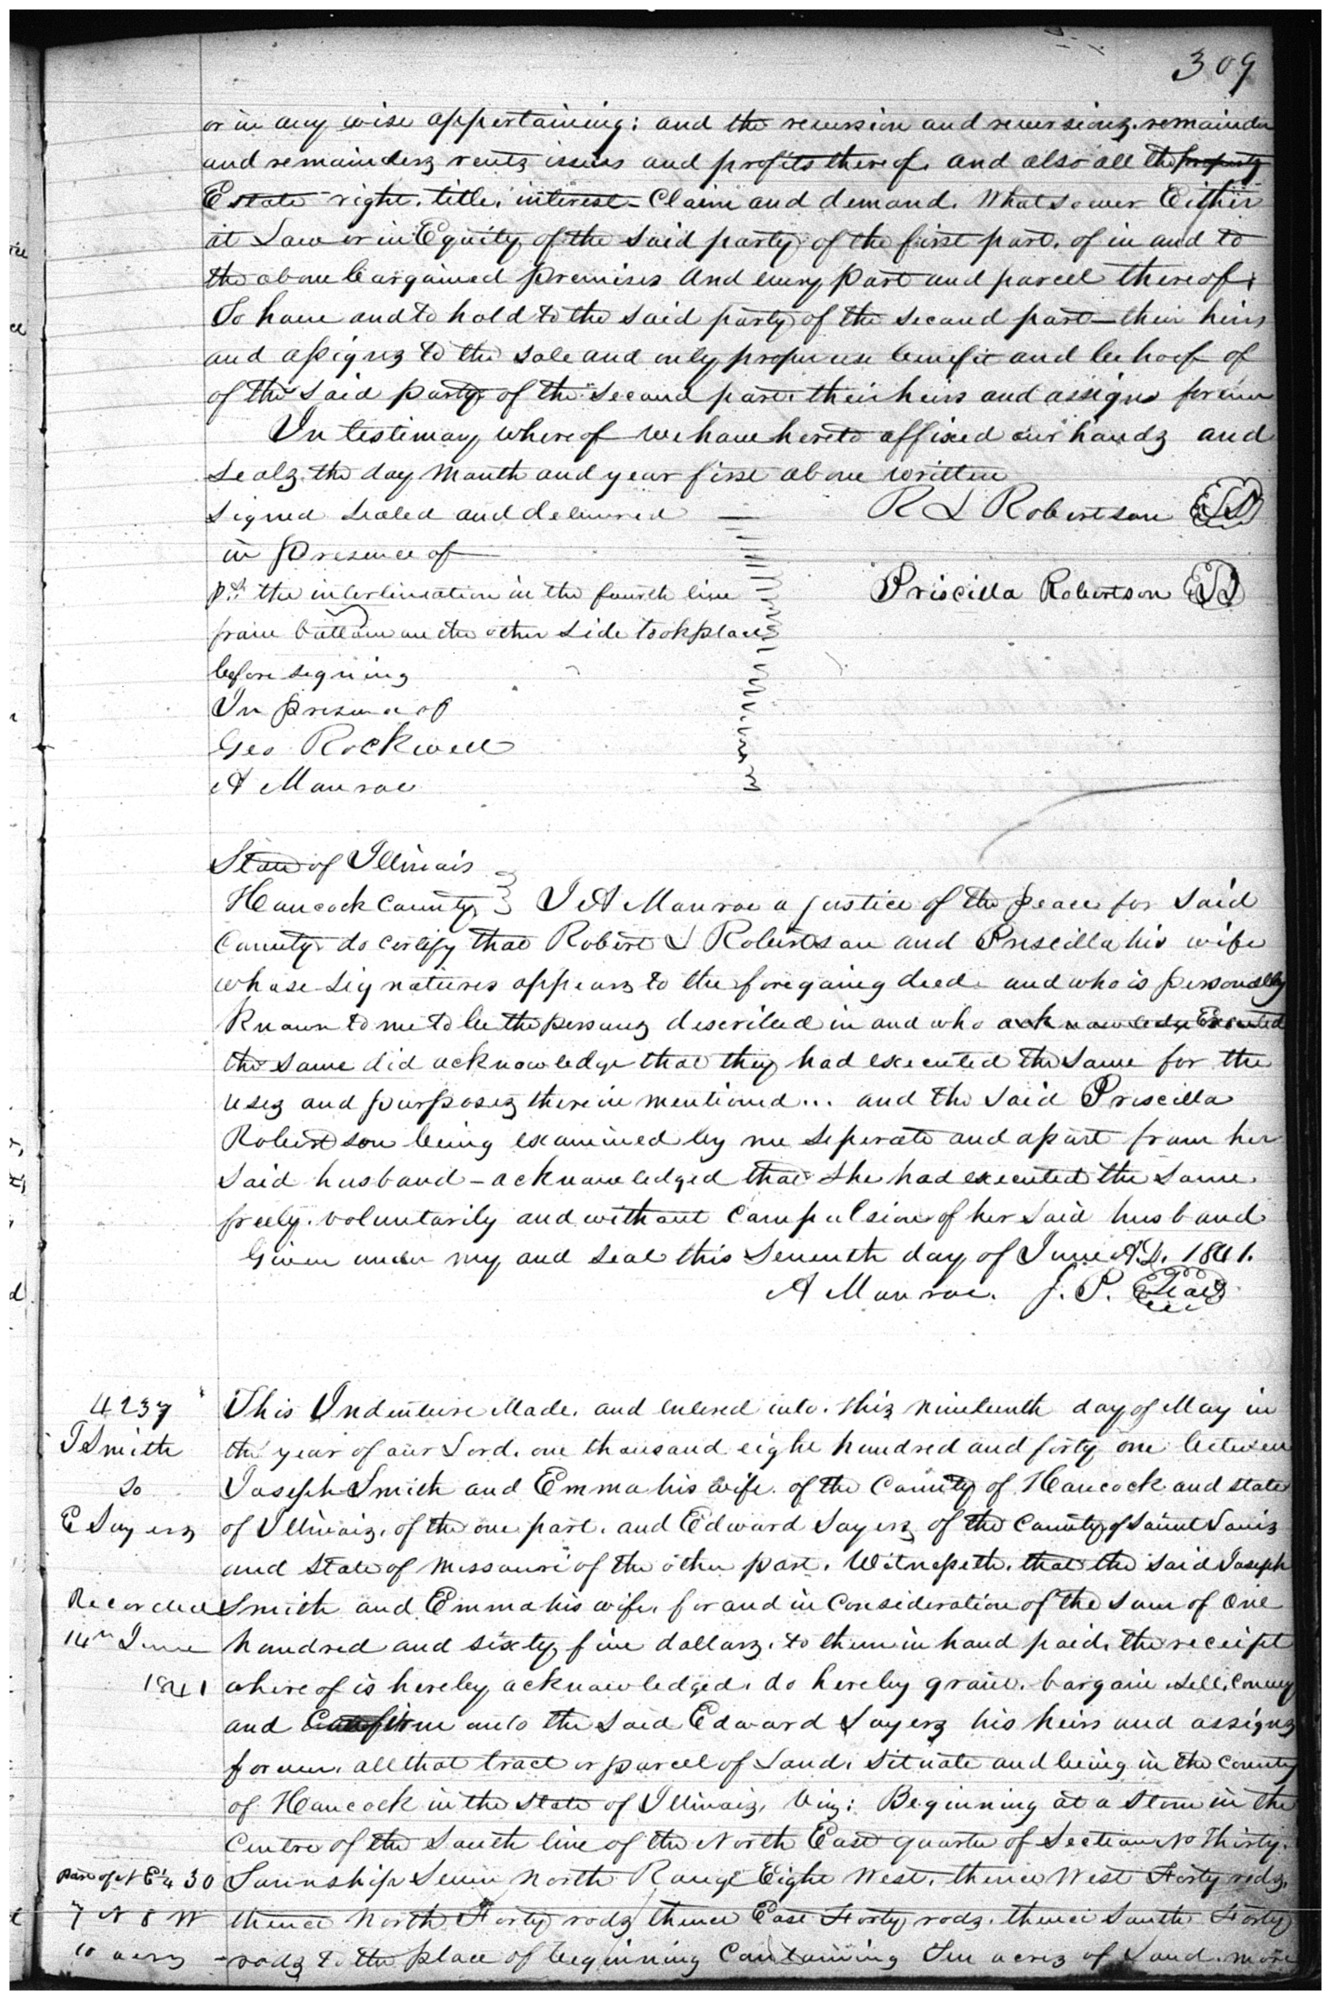 309
or in any wise appertaining; and the reversion and reversions, remainder
and remainders rents issues and profits thereof. and also all the property
Estate right, title, interest Claim and demand. Whatsoever Either
at Law or in Equity of the said party of the first part, of in and to
the above bargained premises And every part and parcel thereof;
To have and to hold to the said party of the second part their heirs
and assigns to the sole and only proper use benefit and behoof of
of the said party of the second part their heirs and assigns forever
In testimony whereof we have hereto affixed our hands and
seals the day month and year first above written
signed sealed and delivered — R S Robertson
in presence of
the interlineation in the fourth line Priscilla Robertson
from bottom on the other side took place
before signing
In presence of
Geo Rockwell
A Monroe
State of Illinois
Hancock County } I A Monroe a justice of the peace for said
County do certify that Robert S Robertson and Priscilla his wife
whose signatures appears to the foregoing deed and who is personally
Known to me to be the persons described in and who acknowledge Executed
the same did acknowledge that they had executed the same for the
uses and purposes therein mentioned... and the said Priscilla
Robertson being examined by me seperate and apart from her
said husband – acknowledged that she had executed the same.
freely. voluntarily and without compulsion of her said husband
Given under my and seal this Seventh day of June A.D. 1841.
A Monroe. J. P. Seal
4237
J Smith
To
E Sayers
Recorded
14th June
1841
This Indenture Made. and entered into. this nineteenth day of May in
the year of our Lord. one thousand eight hundred and forty one between
Joseph Smith and Emma his wife of the County of Hancock and state
of Illinois, of the one part. and Edward Sayers of the County of Saint Louis
and State of Missouri of the other part. Witnesseth. that the said Joseph
Smith and Emma his wife, for and in Consideration of the sum of One
hundred and sixty five dollars. to them in hand paid. the receipt
whereof is hereby acknowledged. do hereby grant. bargain. sell, convey
and Confirm unto the said Edward Sayers his heirs and assigns
forever. all that tract or parcel of Land. situate and being in the County
of Hancock in the State of Illinois, Viz: Beginning at a stone in the
Centre of the South line of the North East quarter of Section No Thirty.
Part of N E ¼ 30
7 N 8 W
10 acres
Township Seven North Range Eight West. thence West Forty rods.
thence North Forty rods thence East Forty rods. thence South Forty
rods to the place of beginning Containing Ten acres of Land. more